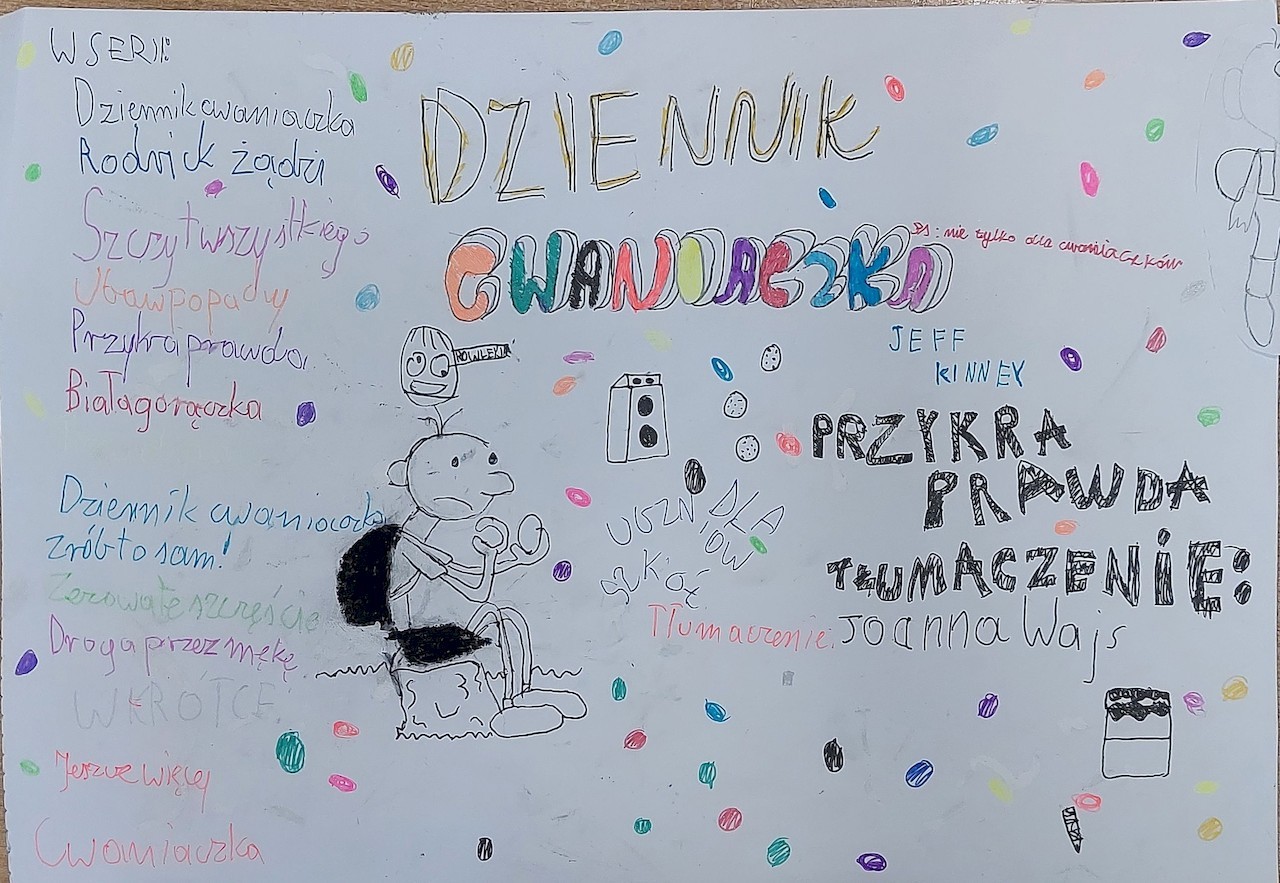 W SERII:
Dziennik cwaniaczka
Rodrick żądzi
Szczyt wszystkiego
Ubaw po pachy
Przykra prawda
Biała gorączka
Dziennik cwaniaczka
zrób to sam!
Zezowate szczęście
Droga przez mękę
WKRÓTCE:
Jeszcze więcej
Cwaniaczka
DZIENNIK
CWANIACZKA
PS: nie tylko dla cwaniaczków
JEFF
KINNEY
ROWLEKIU
PRZYKRA
PRAWDA
DLA
UCZNIÓW
SZKÓŁ
TŁUMACZENIE:
Tłumaczenie: Joanna Wajs